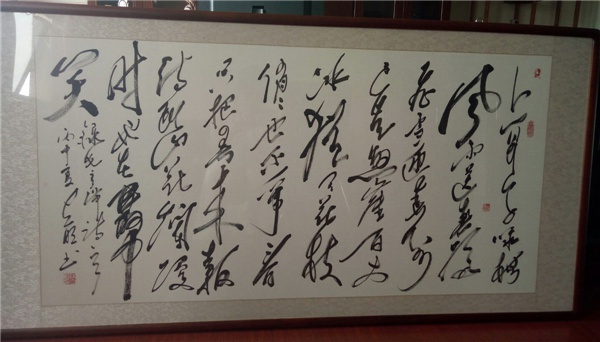 卜算子咏梅
风雨送春归
飞雪迎春到
已是悬崖百丈
冰犹有花枝
俏俏也不争春
只把春来报
待到山花烂漫
时她在丛中
笑
录毛主席诗
书